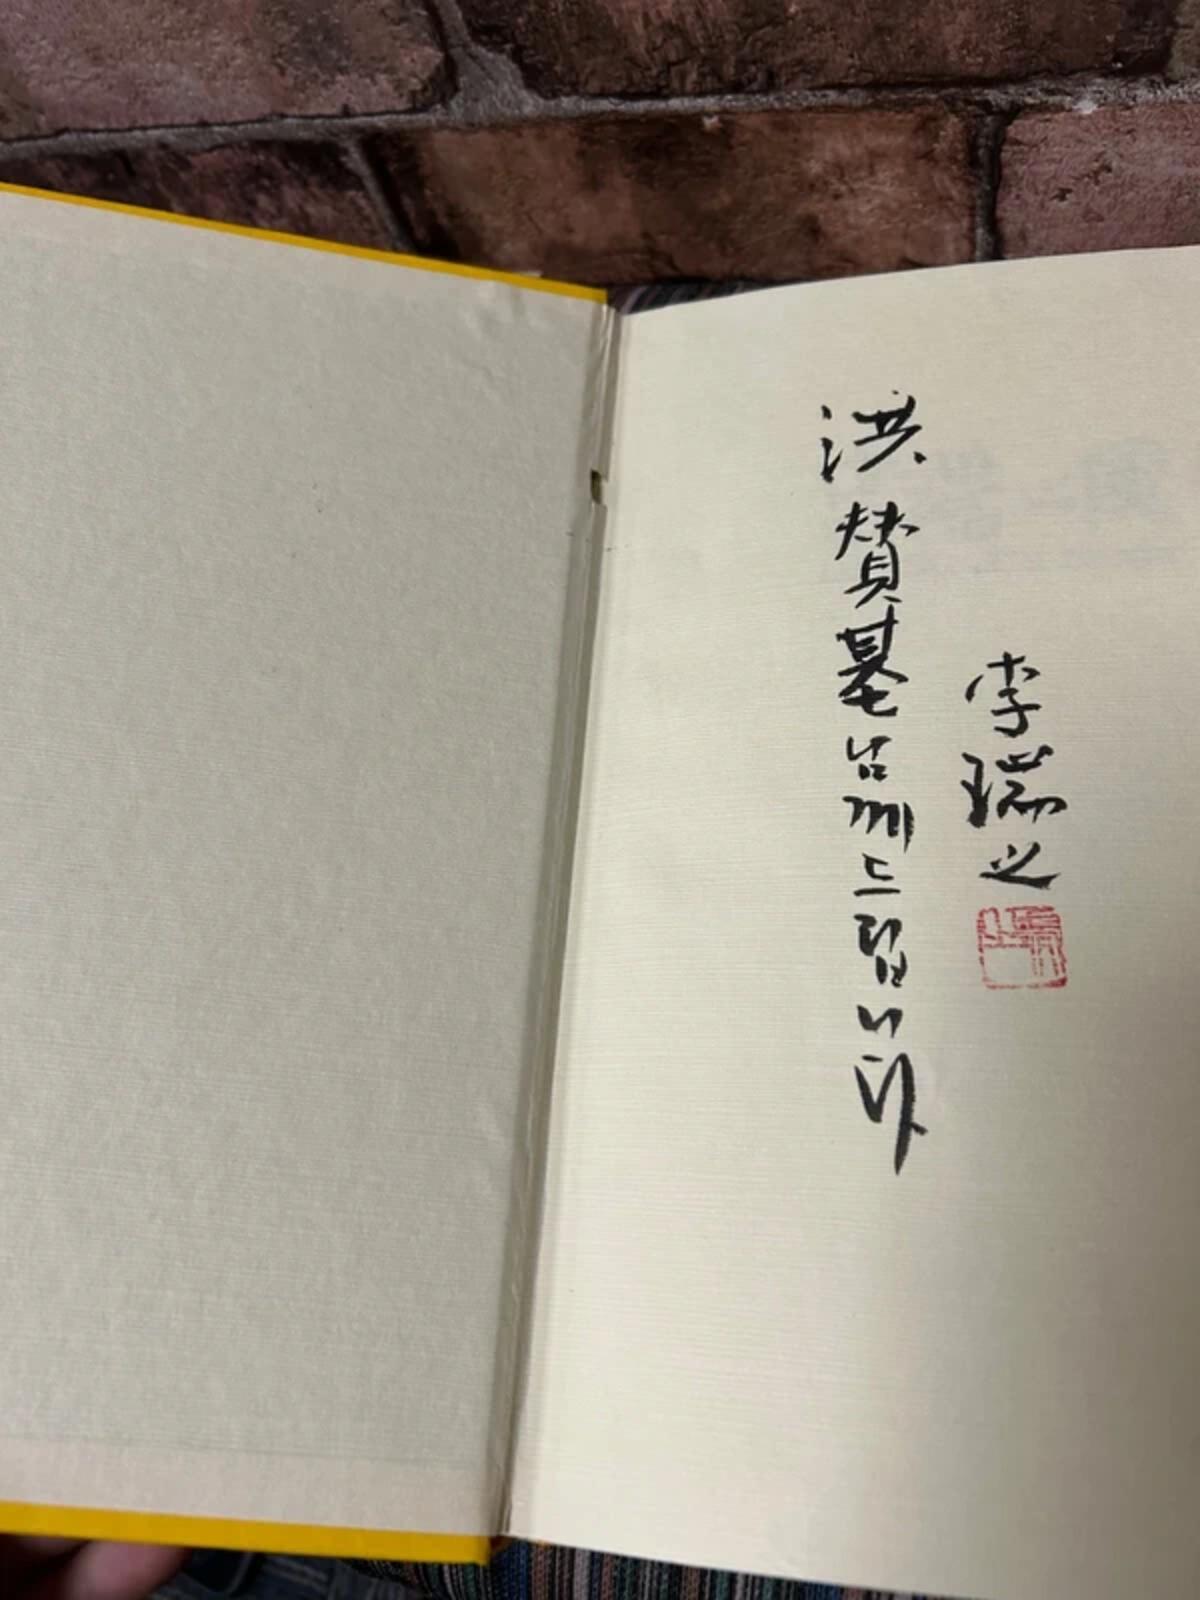 洪贊基님께드립니다
李瑞之